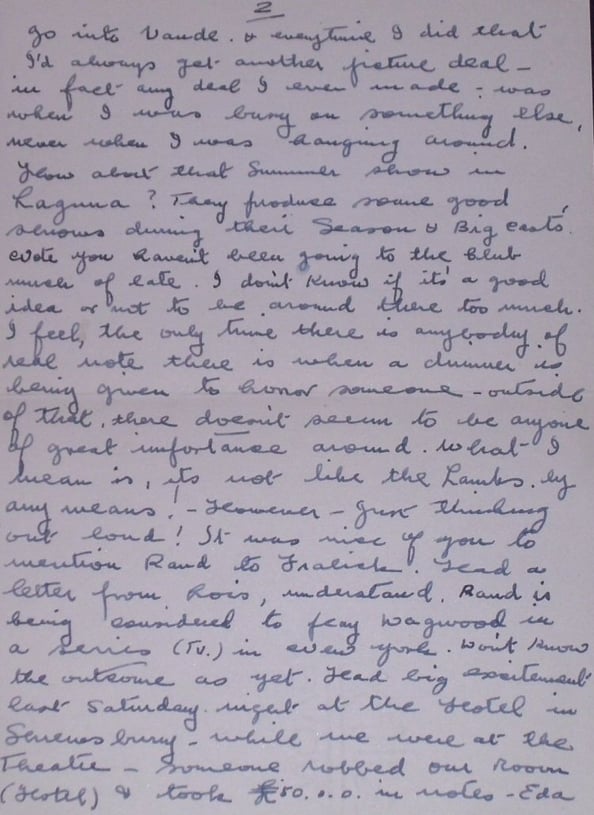 2
go into Vaude. & everytime I did that
I'd always get another picture deal -
in fact any deal I ever made - was
when I was busy on something else,
never when I was hanging around.
How about that Summer show in
Laguna? They produce some good
shows during their Season & Big casts.
Note you haven't been going to the Club
much of late. I don't know if it's a good
idea or not to be around there too much.
I feel, the only time there is anybody of
real note there is when a dinner is
being given to honor someone - outside
of that, there doesn't seem to be anyone
of great importance around. What I
mean is, its not like the Lambs. by
any means! - However - Just thinking
out loud! It was nice of you to
mention Rand to Fralick. Had a
letter from Lois, understand, Rand is
being considered to play Dagwood in
a series (T.V.) in New York. Won't know
the outcome as yet. Had big excitement
last Saturday night at the Hotel in
Shrewsbury - while we were at the
Theatre - Someone robbed our Room
(Hotel) & took £50.0.0. in notes - Eda